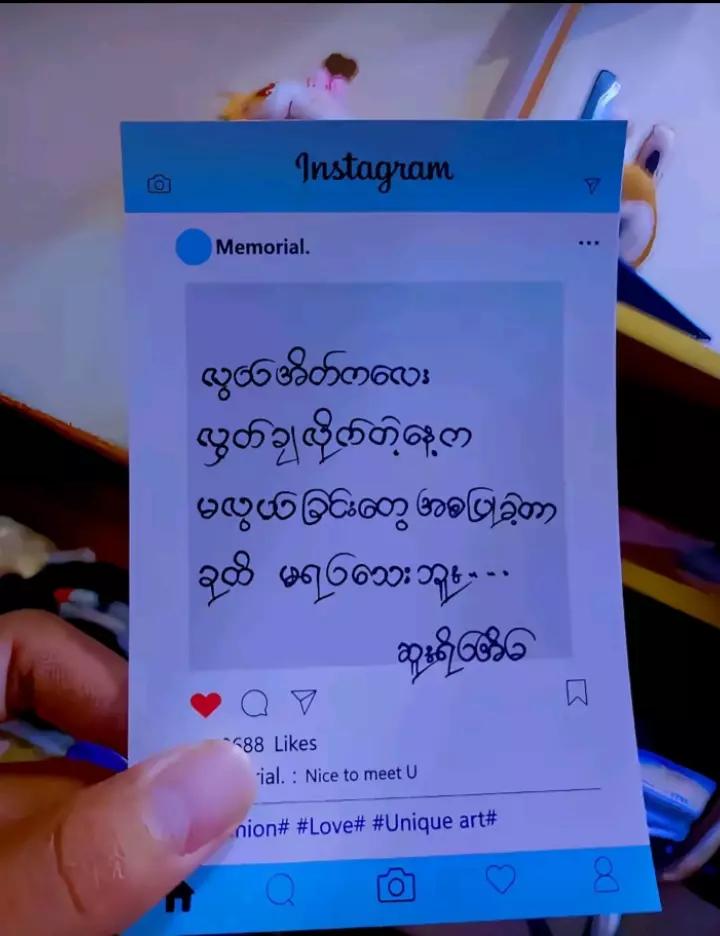 Instagram
Memorial.
လွယ်အိတ်ကလေး
လွှတ်ချလိုက်တဲ့နေ့က
မလွယ်ခြင်းတွေ အစပြုခဲ့တာ
ခုထိ မရပ်သေးဘူး...
688 Likes
rial. : Nice to meet U
nion# #Love# #Unique art#